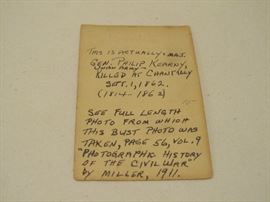 THIS IS ACTUALLY MAJ.
GEN. PHILIP KEARNY,
UNION ARMY
KILLED AT CHANTILLY
SEPT. 1, 1862.
(1814-1862)
SEE FULL LENGTH
PHOTO FROM WHICH
THIS BUST PHOTO WAS
TAKEN, PAGE 56, VOL. 9
"PHOTOGRAPHIC HISTORY
OF THE CIVIL WAR"
by MILLER, 1911.